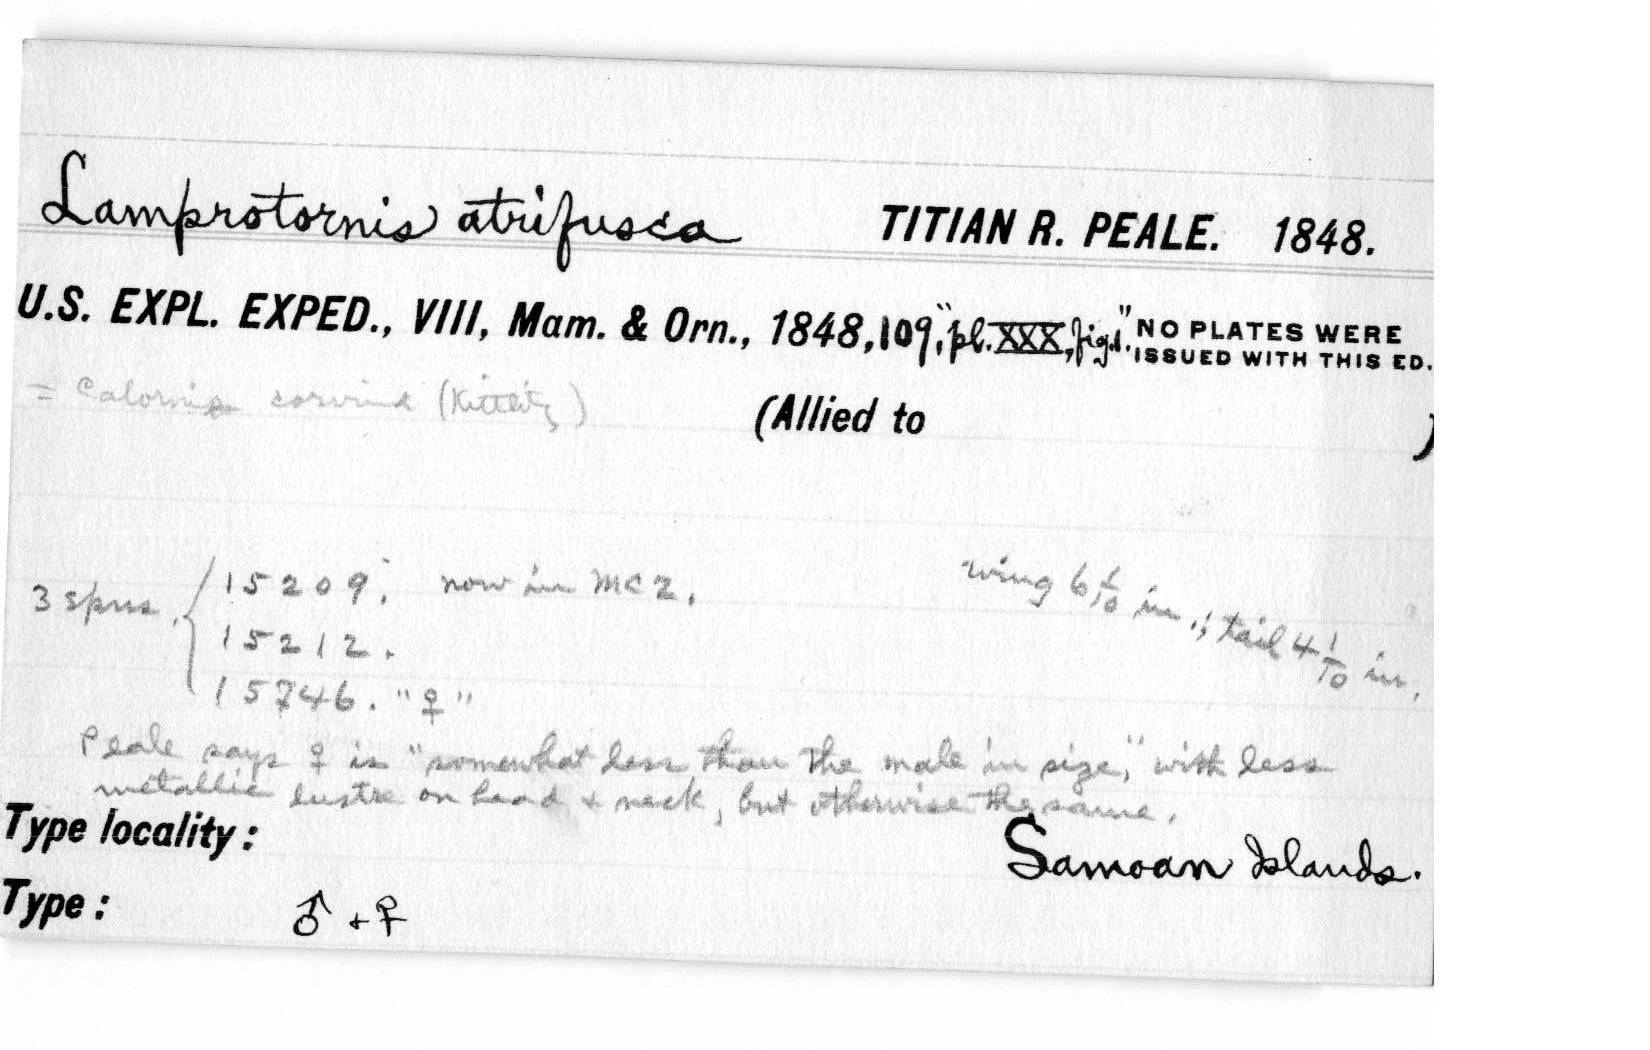 Lamprotornis atrifusca TITIAN R. PEALE. 1848.
U.S. EXPL. EXPED., VIII, Mam. & Orn., 1848, 109, "pl. XXX, fig. 1." NO PLATES WERE
ISSUED WITH THIS ED.
= Calornis corvina (Kittlitz) (Allied to )
3 spms. { 15209; now in MCZ.
15212.
15746. "♀"
wing 6 in.; tail 4 1/10 in.
Peale says ♀ is "somewhat less than the male in size," with less
metallic lustre on head & neck, but otherwise the same.
Type locality: Samoan Islands.
Type: ♂ + ♀